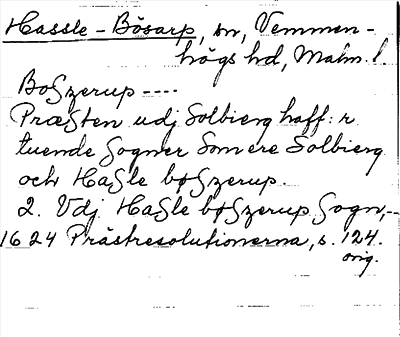 Hassle-Bösarp, sn, Vemmen-
högs hd, Malm. l.
Boßzerup ----
Præsten udj Solbierg haff: r
tuende Sogner Som ere Solbierg
och Haßle bøßzerup.
2. Udj Haßle bøßzerup Sogn,--
1624 Prästresolutionerna, s. 124.
orig.